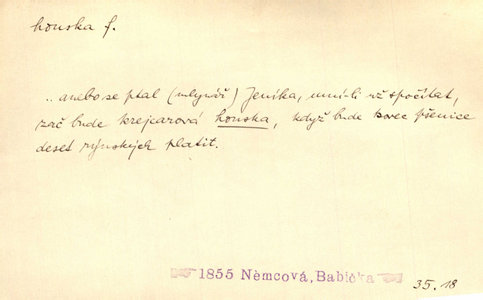 houska f.
..anebo se ptal (mlynář) Jeníka, umí-li už spočítat,
zač bude krejcarová houska, když bude korec pšenice
deset rýnských platit.
1855 Němcová, Babička
35.18